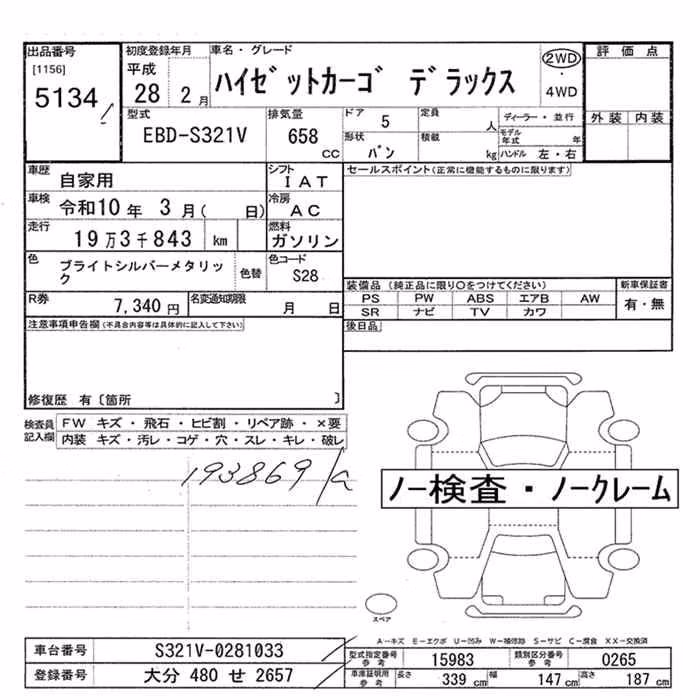 出品番号
[1156]
5134
初度登録年月
平成
28 2 月
車名・グレード
ハイゼットカーゴ デラックス
2WD
・
4WD
評価点
外装 内装
型式
EBD-S321V
排気量
658
CC
ドア 5
形状
バン
定員
人
積載
kg
ディーラー・並行
モデル年式 年
ハンドル 左・右
車歴 自家用
シフト IAT
車検 令和10年 3月( 日)
冷房 AC
走行 19万3千843 km
燃料 ガソリン
色 ブライトシルバーメタリック
色替
色コード S28
R券 7,340円
名変通知期限 月 日
セールスポイント(正常に機能するものに限ります)
装備品(純正品に限り○をつけてください)
新車保証書
PS PW ABS エアB AW
SR ナビ TV カワ
有・無
後日品
注意事項申告欄(不具合内容等は具体的に記入して下さい)
修復歴 有〔箇所 〕
検査員記入欄
FW キズ・飛石・ヒビ割・リペア跡・×要
内装 キズ・汚レ・コゲ・穴・スレ・キレ・破レ
193869
ノー検査・ノークレーム
スペア
A-キズ E-エクボ U-凹み W-補修跡 S-サビ C-腐食 XX-交換済
車台番号 S321V-0281033
登録番号 大分 480 せ 2657
型式指定番号 参考 15983
類別区分番号 参考 0265
車庫証明用 参考 長さ 339 cm 幅 147 cm 高さ 187 cm